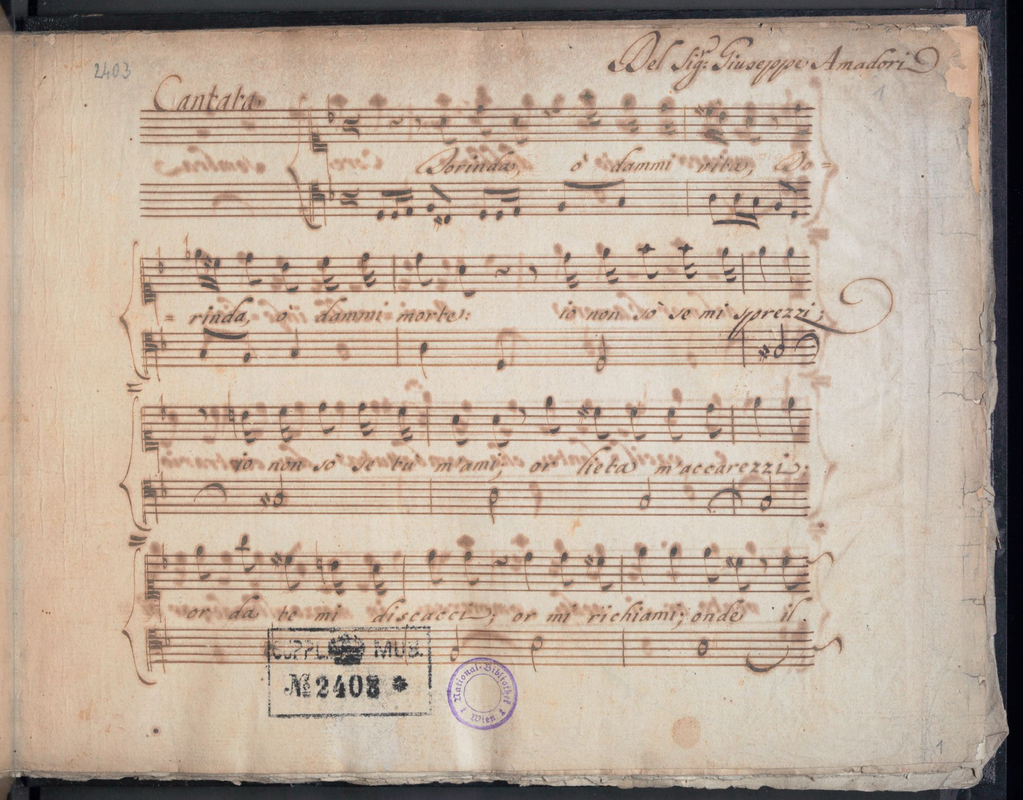 2403
Del Sigr: Giuseppe Amadori
1
Cantata
Dorinda, ò dammi vita, Do=
= rinda, ò dammi morte: io non sò se mi sprezzi;
io non so se tu m'ami; or lieta m'accarezzi;
or da te mi discacci; or mi richiami; onde il
SUPPL. MUS.
№ 2408 *
National-Bibliothek
Wien
1